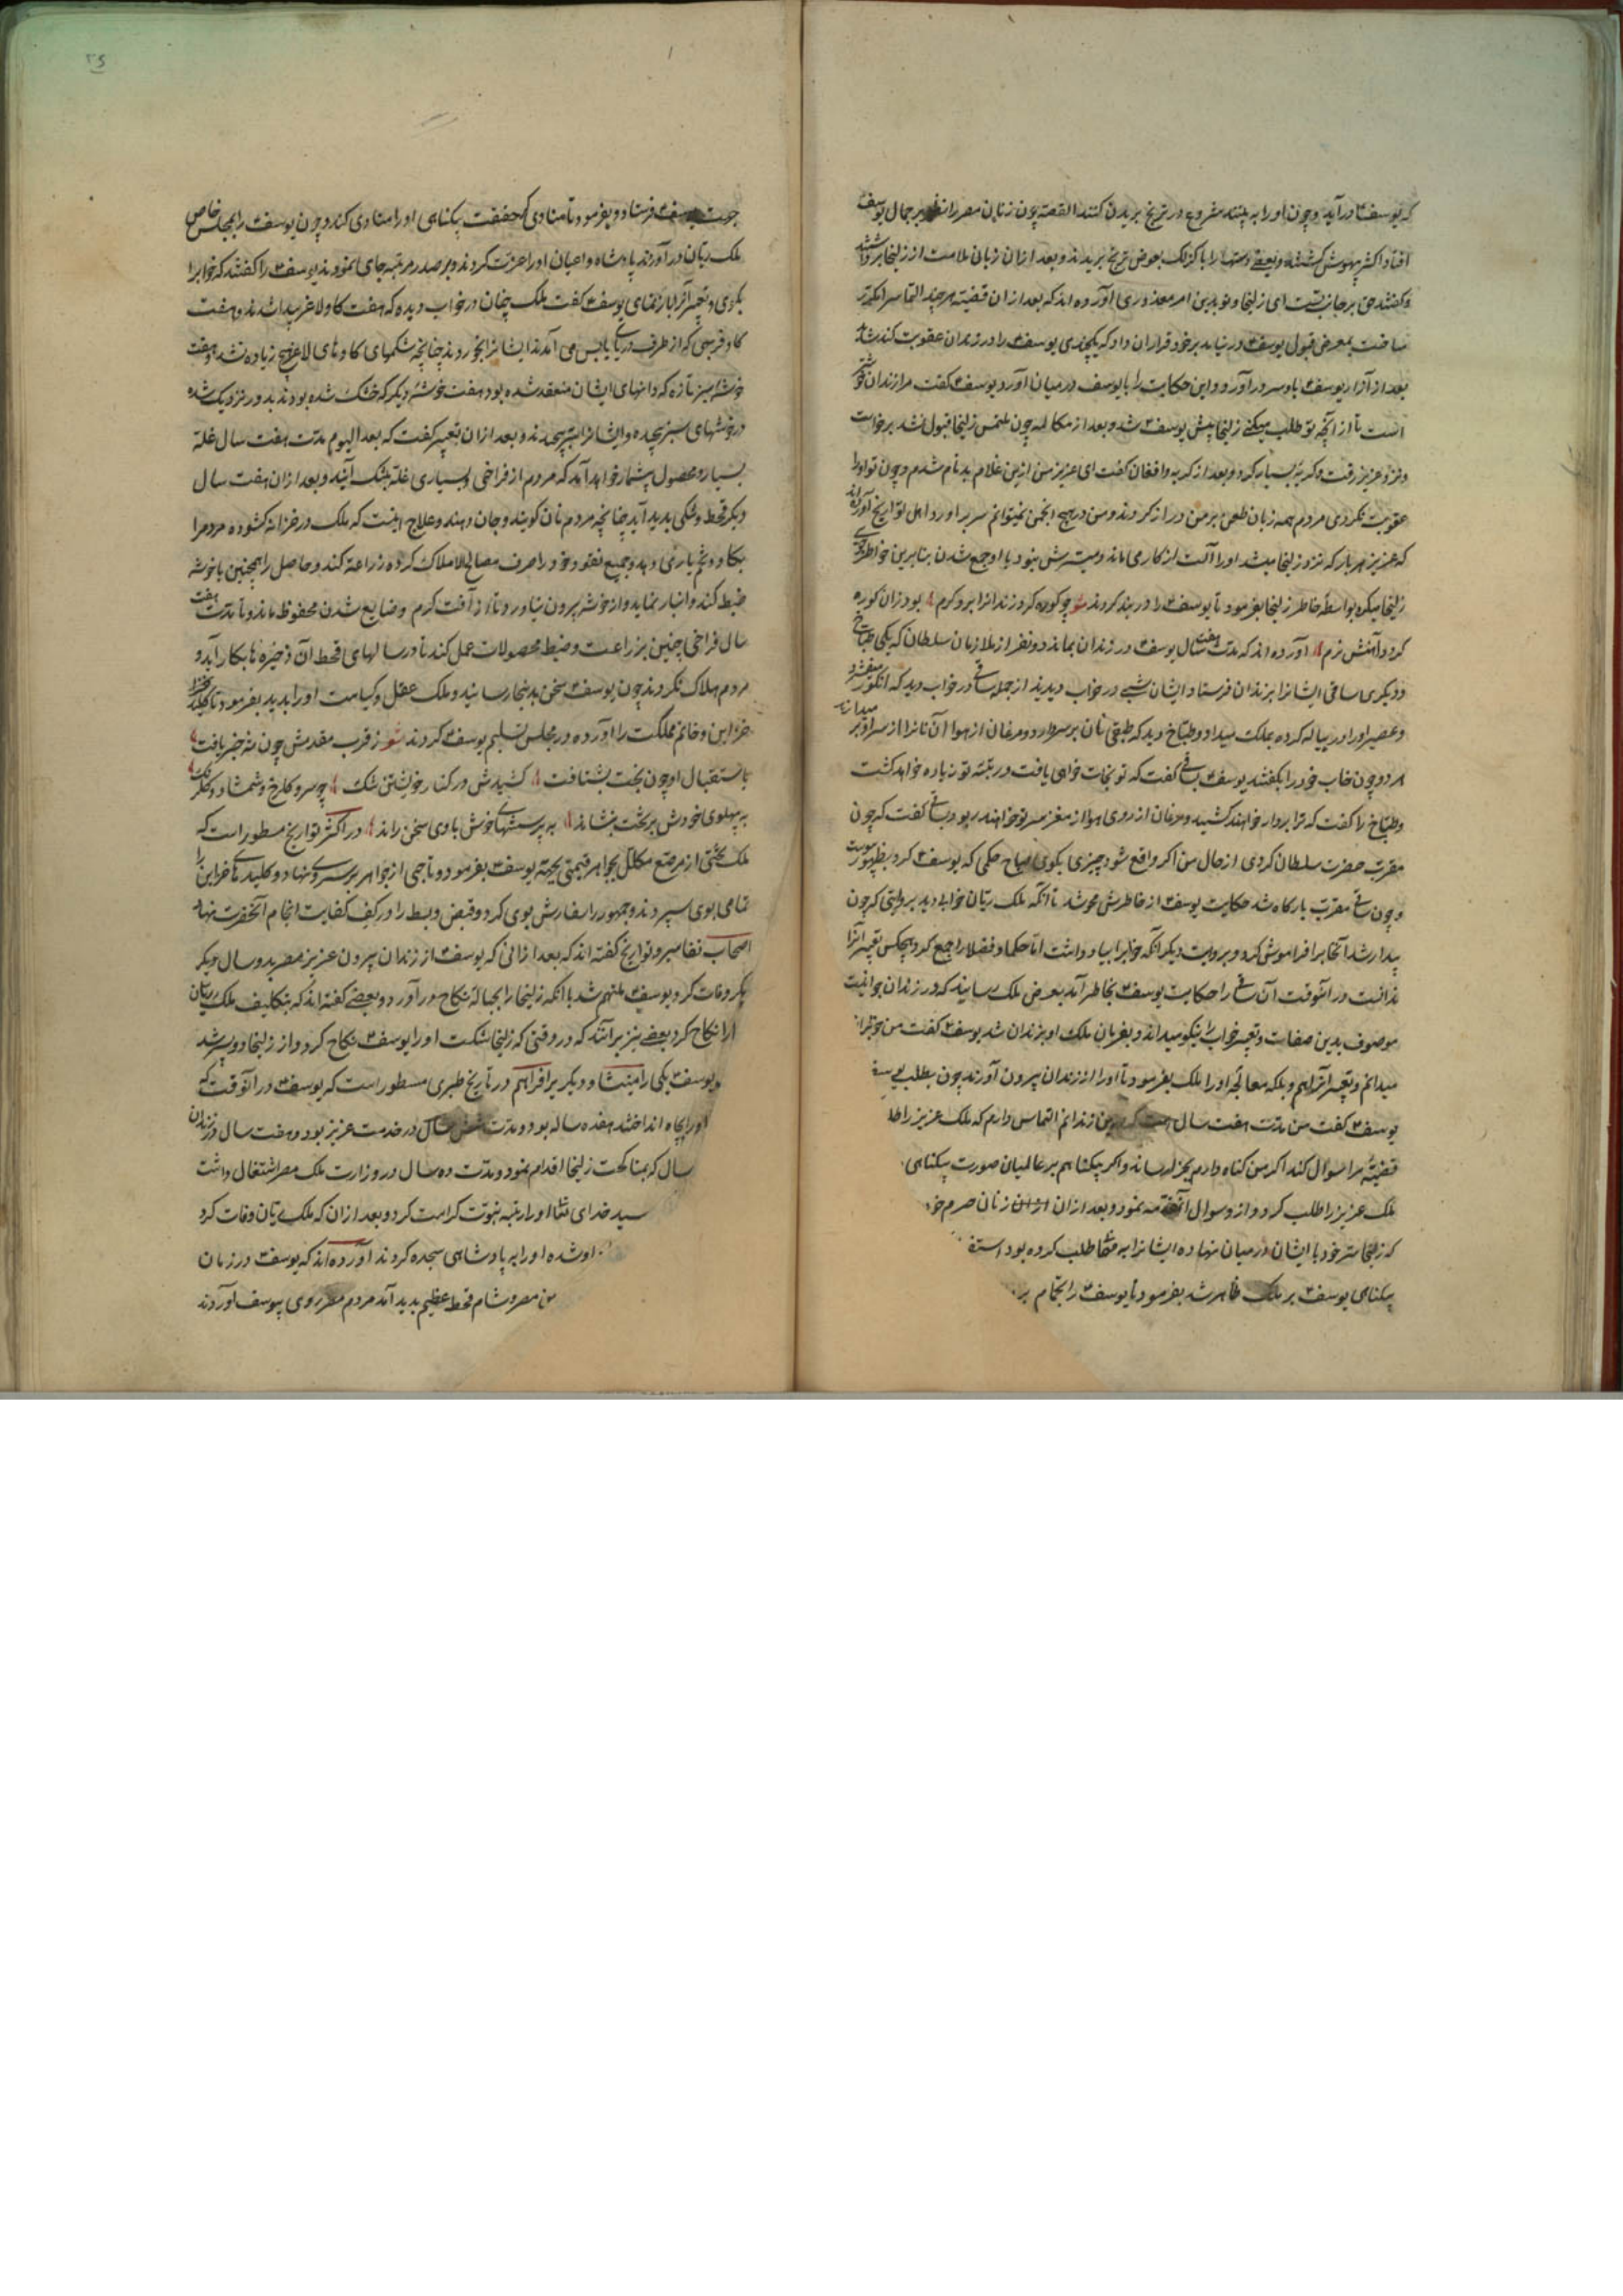 که یوسف۴ درآید و چون او را به بینند شروع در ترنج بریدن کنند القصه چون زنان مصر را نظر بر جمال یوسف
افتاد اکثر بیهوش کشتند و بعضی دستها را با کزلک بعوض ترنج بریدند و بعد ازان زبان ملامت از زلیخا برداشتند
و کفتند حق بر جانب تست ای زلیخا و تو بدین امر معذوری آورده اند که بعد از ان قضیه هر چند التماس
ساخت بمعرض قبول یوسف۴ در نیامد بر خود قرار ان داد که یکچندی یوسف۴ را در زندان عقوبت کند شاید
بعد از آزار یوسف۴ باو سر در آورد و این حکایت را با یوسف در میان آورد یوسف۴ کفت مرا زندان خوشتر
است تا از آنچه تو طلب میکنی زلیخا پیش یوسف۴ شد و بعد از مکالمه چون ملتمس زلیخا قبول نشد برخواست
و نزد عزیز رفت و کریه بسیار کرد و بعد از کریه و افغان کفت ای عزیز من ازین غلام بدنام شدم و چون تو او را
عقوبت نکردی مردم همه زبان طعن بر من دراز کردند و من در هیچ انجمن نمیتوانم سر بر اورد اهل تواریخ آورده اند
که عزیز هر بار که نزد زلیخا میشد او را آلت از کار می ماند و میسرش نبود با او جمع شدن بنابرین خواطر جویی
زلیخا میکرد بواسطه خاطر زلیخا بفرمود تا یوسف۴ را در بند کردند شعر چو کوره کرد زندانرا برو کرم بود زان کوره
کردد آهنش نرم آورده اند که مدت هفت سال یوسف۴ در زندان بماند دو نفر از ملازمان سلطان که یکی طباخ
و دیگری ساقی ایشانرا بزندان فرستاد ایشان شبی در خواب دیدند از جمله ساقی در خواب دید که انکور میفشرد
و عصیر او را در پیاله کرده بملک میداد و طباخ دید که طبقی نان بر سر دارد و مرغان از هوا آن نانرا از سر او بر میدارند
هر دو چون خاب خود را بکفتند یوسف۴ بساقی کفت که تو نجات خواهی یافت و رتبه تو زیاده خواهد کشت
و طباخ را کفت که ترا بر دار خواهند کشید و مرغان از روی هوا از مغز سر تو خواهند ربود و بساقی کفت که چون
مقرب حضرت سلطان کردی از حال من اکر واقع شود چیزی بکوی صباح حکمی که یوسف۴ کرد بظهور پیوست
و چون ساقی مقرب بارکاه شد حکایت یوسف۴ از خاطرش محو شد تا آنکه ملک ریان خوابی دید بروایتی که چون
بیدار شد آنخابرا فراموش کرد و بروایت دیکر آنکه خابرا بیاد داشت اما حکما و فضلا را جمع کرد هیچکس تعبیر آنرا
ندانست در انوقت آن ساقی را حکایت یوسف۴ بخاطر آمد بعرض ملک رسانید که در زندان جوانیست
موصوف بدین صفات و تعبیر خواب را نیکو میداند و بفرمان ملک او بزندان شد یوسف۴ کفت من خوابرا
میدانم و تعبیر آنرا هم و بلکه معالجه او را ملک بفرمود تا او را از زندان بیرون آورند چون بطلب یوسف
یوسف۴ کفت من مدت هفت سال است که درین زندانم التماس دارم که ملک عزیز را
قضیه مرا سوال کند اکر من کناه دارم بجزا رساند و اکر بیکناهم بر عالمیان صورت بیکناهی
ملک عزیز را طلب کرد و ازو سوال آنقصه نمود و بعد ازان از ان زنان حرم خود
که زلیخا سر خود با ایشان در میان نهاده ایشانرا به طلب کرده بود
بیکناهی یوسف۴ بر ملک ظاهر شد بفرمود تا یوسف۴ را
یوسف۴ فرستاد و بفرمود تا منادی که حقیقت بیکناهی او را منادی کند و چون یوسف۴ را بمجلس خاص
ملک ریان در آوردند پادشاه و اعیان او را عزت کردند و بر صدر مرتبه جای نمودند یوسف۴ را کفتند که خوابرا
بکوی و تعبیر آنرا باز نمای یوسف۴ کفت ملک چنان در خواب دیده که هفت کاو لاغر پیدا شدند و هفت
کاو فربهی که از طرف دریای یابس می آمدند ایشانرا بخوردند چنانچه شکمهای کاوهای لاغر هیچ زیاده نشد و هفت
خوشه سبز تازه که دانهای ایشان منعقد شده بود هفت خوشه دیکر که خشک شده بودند بدو نزدیک شده
در خوشهای سبز پیچیدند و بعد ازان تعبیر کفت که بعد الیوم مدت هفت سال غله
بسیار و محصول بیشمار خواهد آمد که مردم از فراخی و بسیاری غله بتنک آیند و بعد ازان هفت سال
دیکر قحط و تنکی پدید آید چنانچه مردم نان کویند و جان دهند و علاج اینست که ملک در خزانه کشوده مردمرا
بکاو و تخم یاری دهد و جمیع نقود خود را صرف مصالح الاملاک کرده زراعه کند و حاصل را همچنین با خوشه
ضبط کند و انبار نماید و از خوشه بیرون نیاورد تا از آفت کرم و ضایع شدن محفوظ ماند و تا مدت هفت
سال فراخی چنین بزراعت و ضبط محصولات عمل کند تا در سالهای قحط آن ذخیره ها بکار آید و
مردم هلاک نکردند چون یوسف۴ سخن بدینجا رسانید و ملک عقل و کیاست او را بدید بفرمود تا کلید
خزاین و خاتم مملکت را آورده در مجلس تسلیم یوسف۴ کردند شعر ز قرب مقدمش چون شه خبر یافت
باستقبال او چون بخت بشتافت کشیدش در کنار خویشتن تنک چو سرو کلرخ و شمشاد کلرنک
به پهلوی خودش بر تخت بنشاند به پرسشهای خوش با وی سخن راند در اکثر تواریخ مسطور است که
ملک تختی از مرصع مکلل بجواهر قیمتی بجهة یوسف۴ بفرمود و تاجی از جواهر بر سر وی نهاد و کلیدهای خزاین را
تمامی بوی سپردند و جمهور را سفارش بوی کرد و قبض و بسط را در کف کفایت انجام آنحضرت نهاد
اصحاب تفاسیر و تواریخ کفته اند که بعد از انی که یوسف۴ از زندان بیرون عزیز مصر بدو سال دیکر
وفات کرد یوسف۴ ملهم شد بانکه زلیخا را بحباله نکاح در آورد و بعضی کفته اند که بتکلیف ملک ریان
او را نکاح کرد و بعضی نیز برانند که در وقتی که زلیخا شکست او را یوسف۴ نکاح کرد و از زلیخا دو پسر شد
یوسف۴ یکی را منشا و دیکر را افراهیم در تاریخ طبری مسطور است که یوسف۴ در انوقت که
او را بچاه انداختند هفده ساله بود و مدت سال در خدمت عزیز بود و هفت سال در زندان
سال که بمناکحت زلیخا اقدام نمود و مدت ده سال در وزارت ملک مصر اشتغال داشت
خدای تعالی او را رتبه نبوت کرامت کرد و بعد ازان که ملک ریان وفات کرد
او شده او را به پادشاهی سجده کردند آورده اند که یوسف۴ در زمان
مصر و شام قحط عظیم پدید آمد مردم مصر روی بیوسف آوردند